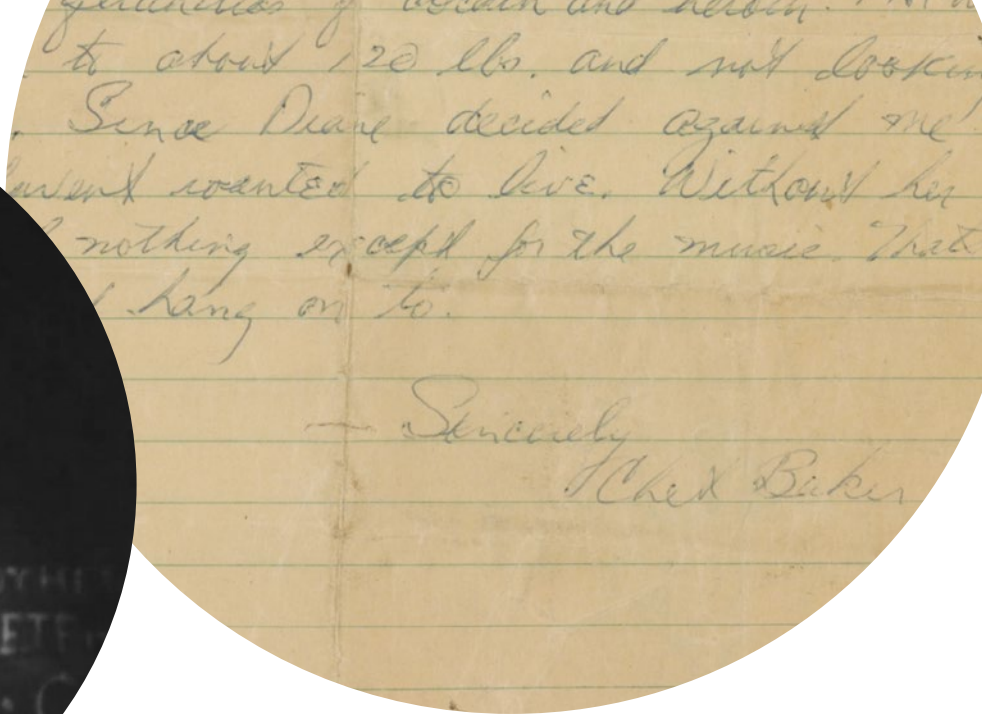 quantities of cocain and heroin.
. to about 120 lbs. and not lookin
. Since Diane decided against me
havent wanted to live. Without her
nothing except for the music. That
hang on to.
— Sincerely
Chet Baker
ETE